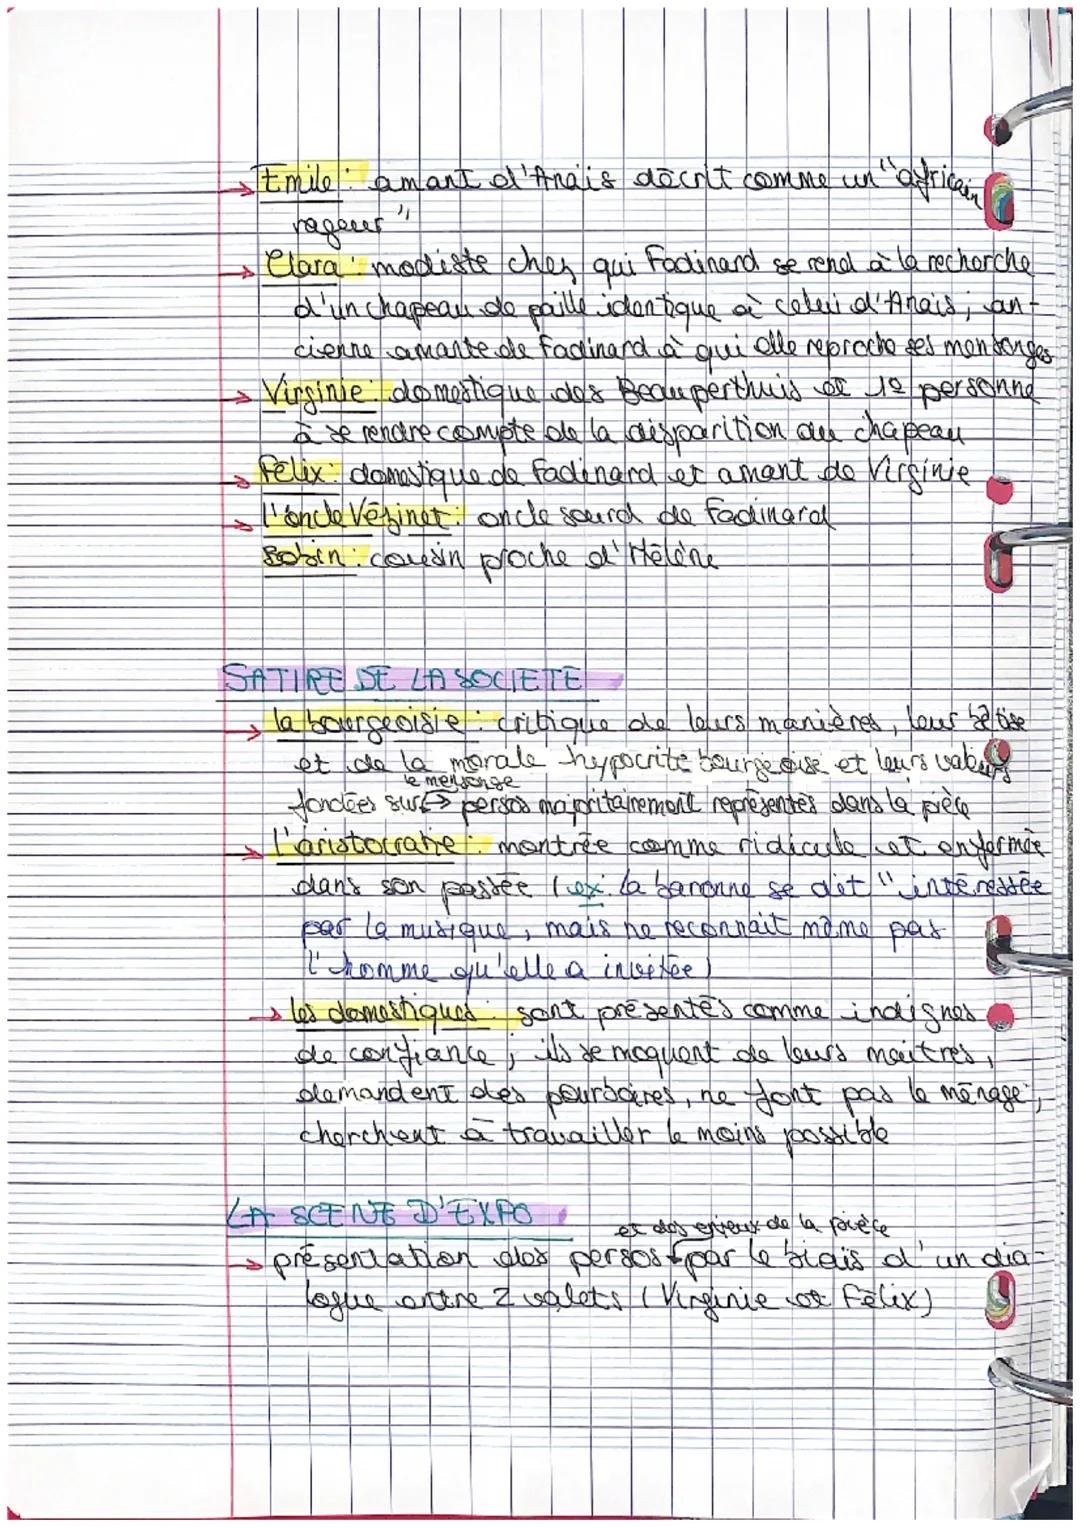 → Emile : amant d'Anaïs décrit comme un "africain
rageur"
→ Clara : modiste chez qui Fadinard se rend à la recherche
d'un chapeau de paille identique à celui d'Anaïs ; an-
cienne amante de Fadinard à qui elle reproche ses mensonges
→ Virginie : domestique des Beauperthuis et 1e personne
à se rendre compte de la disparition du chapeau
→ Félix : domestique de Fadinard et amant de Virginie
→ l'oncle Vézinet : oncle sourd de Fadinard
Bobin : cousin proche d'Hélène
SATIRE DE LA SOCIETE
→ la bourgeoisie : critique de leurs manières, leur bêtise
et de la morale hypocrite bourgeoise et leurs valeurs
le mensonge
fondées sur → persos majoritairement représentés dans la pièce
→ l'aristocratie : montrée comme ridicule et enfermée
dans son passée (ex : la baronne se dit "intéressée
par la musique, mais ne reconnait même pas
l'homme qu'elle a invitée)
→ les domestiques : sont présentés comme indignes
de confiance ; ils se moquent de leurs maîtres,
demandent des pourboires, ne font pas le ménage ;
cherchent à travailler le moins possible
LA SCENE D'EXPO
et des enjeux de la pièce
→ présentation des persos par le biais d'un dia-
logue entre 2 valets (Virginie et Félix)